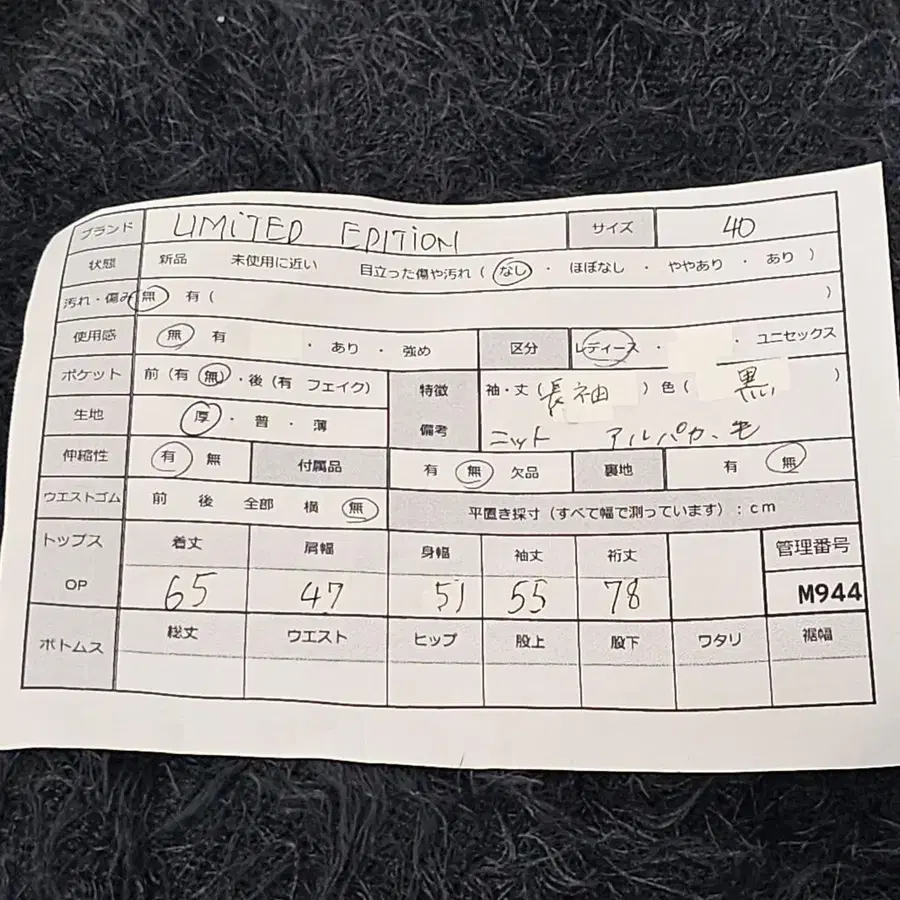 ブランド LIMITED EDITION サイズ 40
状態 新品 未使用に近い 目立った傷や汚れ ( なし ・ ほぼなし ・ ややあり ・ あり )
汚れ・傷み 無 有 ( )
使用感 無 有 ・ あり ・ 強め 区分 レディース ・ ・ ユニセックス
ポケット 前 (有 無) ・後 (有 フェイク) 特徴 袖・丈 ( 長袖 ) 色 ( 黒 )
生地 厚 ・ 普 ・ 薄 備考 ニット アルパカ、毛
伸縮性 有 無 付属品 有 無 欠品 裏地 有 無
ウエストゴム 前 後 全部 横 無 平置き採寸 (すべて幅で測っています) : cm
トップス 着丈 肩幅 身幅 袖丈 裄丈 管理番号
OP 65 47 51 55 78 M944
ボトムス 総丈 ウエスト ヒップ 股上 股下 ワタリ 裾幅